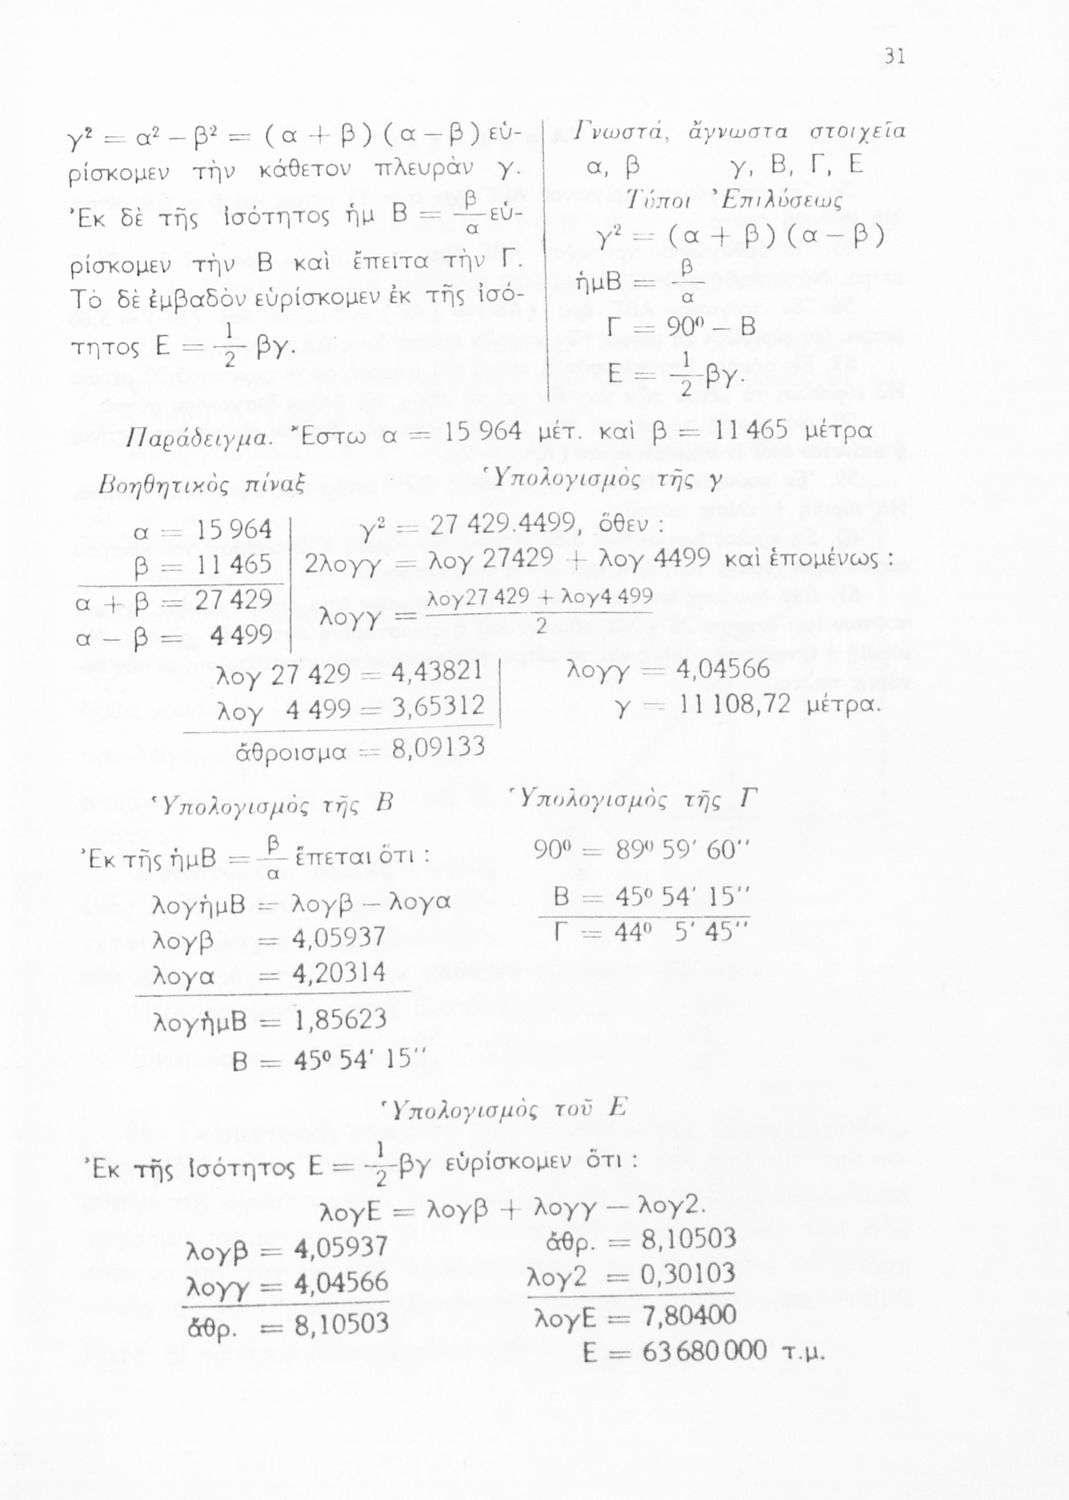 31
γ² = α² – β² = (α + β) (α – β) εὑ-
ρίσκομεν τὴν κάθετον πλευρὰν γ.
Ἐκ δὲ τῆς ἰσότητος ἡμ Β = β/α εὑ-
ρίσκομεν τὴν Β καὶ ἔπειτα τὴν Γ.
Τὸ δὲ ἐμβαδὸν εὑρίσκομεν ἐκ τῆς ἰσό-
τητος Ε = 1/2 βγ.
Γνωστά, ἄγνωστα στοιχεῖα
α, β γ, Β, Γ, Ε
Τύποι Ἐπιλύσεως
γ² = (α + β) (α – β)
ἡμΒ = β/α
Γ = 90⁰ – Β
Ε = 1/2 βγ.
Παράδειγμα. Ἔστω α = 15 964 μέτ. καὶ β = 11 465 μέτρα
Βοηθητικὸς πίναξ
α = 15 964
β = 11 465
α + β = 27 429
α – β = 4 499
Ὑπολογισμὸς τῆς γ
γ² = 27 429.4499, ὅθεν :
2λογγ = λογ 27429 + λογ 4499 καὶ ἑπομένως :
λογγ = λογ27 429 + λογ4 499 / 2
λογ 27 429 = 4,43821
λογ 4 499 = 3,65312
ἄθροισμα = 8,09133
λογγ = 4,04566
γ = 11 108,72 μέτρα.
Ὑπολογισμὸς τῆς Β
Ἐκ τῆς ἡμΒ = β/α ἕπεται ὅτι :
λογἡμΒ = λογβ – λογα
λογβ = 4,05937
λογα = 4,20314
λογἡμΒ = 1,85623
Β = 45⁰ 54′ 15″
Ὑπολογισμὸς τῆς Γ
90⁰ = 89⁰ 59′ 60″
Β = 45⁰ 54′ 15″
Γ = 44⁰ 5′ 45″
Ὑπολογισμὸς τοῦ Ε
Ἐκ τῆς ἰσότητος Ε = 1/2 βγ εὑρίσκομεν ὅτι :
λογΕ = λογβ + λογγ — λογ2.
λογβ = 4,05937
λογγ = 4,04566
ἄθρ. = 8,10503
ἄθρ. = 8,10503
λογ2 = 0,30103
λογΕ = 7,80400
Ε = 63 680 000 τ.μ.